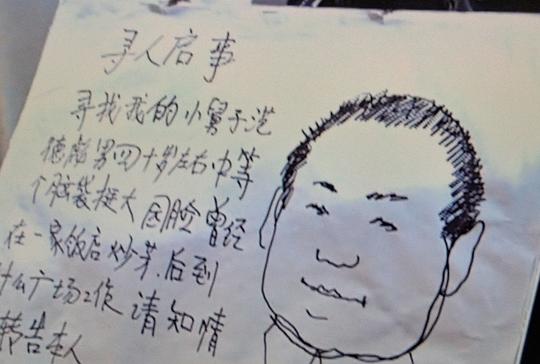 寻人启事
寻找我的小舅子范
德彪男四十岁左右中等
个脑袋挺大圆脸曾经
在一家饭店炒菜.后到
什么广场工作 请知情
转告本人